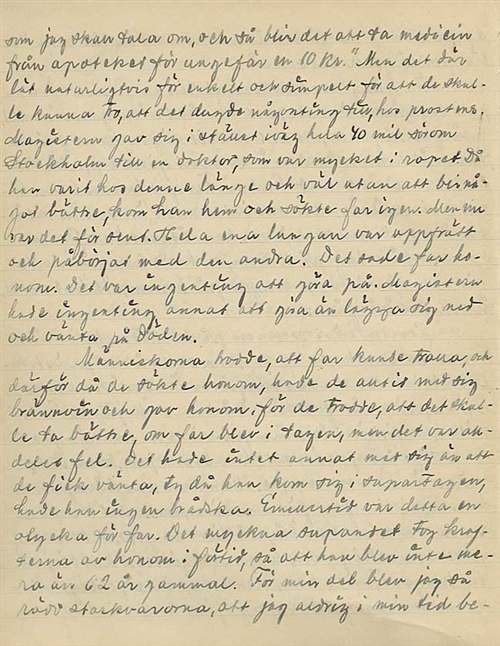 som jag skall tala om, och så blir det att ta medicin
från apoteket för ungefär en 10 Kr." Men det där
lät naturligtvis för enkelt och simpelt för att de skul-
le kunna tro, att det dugde någonting till, hos prostens.
Magistern gav sig i stället iväg hela 40 mil söröm
Stockholm till en doktor, som var mycket i ropet. Då
han varit hos denne länge och väl utan att bli nå-
got bättre, kom han hem och sökte far igen. Men nu
var det för sent. Hela ena lungan var uppfrätt
och påbörjat med den andra. Det sade far ho-
nom. Det var ingenting att göra på. Magistern
hade ingenting annat att göra än lägga sig ned
och vänta på döden.
Människorna trodde, att far kunde trolla, och
därför då de sökte honom, hade de alltid med sig
brännvin och gav honom, för de trodde, att det skul-
le ta bättre, om far blev i tagen, men det var all-
deles fel. Det hade intet annat med sig än att
de fick vänta, ty då han kom sig i supartagen,
hade han ingen brådska. Emellertid var detta en
olycka för far. Det myckna supandet tog kraf-
terna av honom i förtid, så att han blev inte me-
ra än 62 år gammal. För min del blev jag så
rädd starkvarorna, att jag aldrig i min tid be-